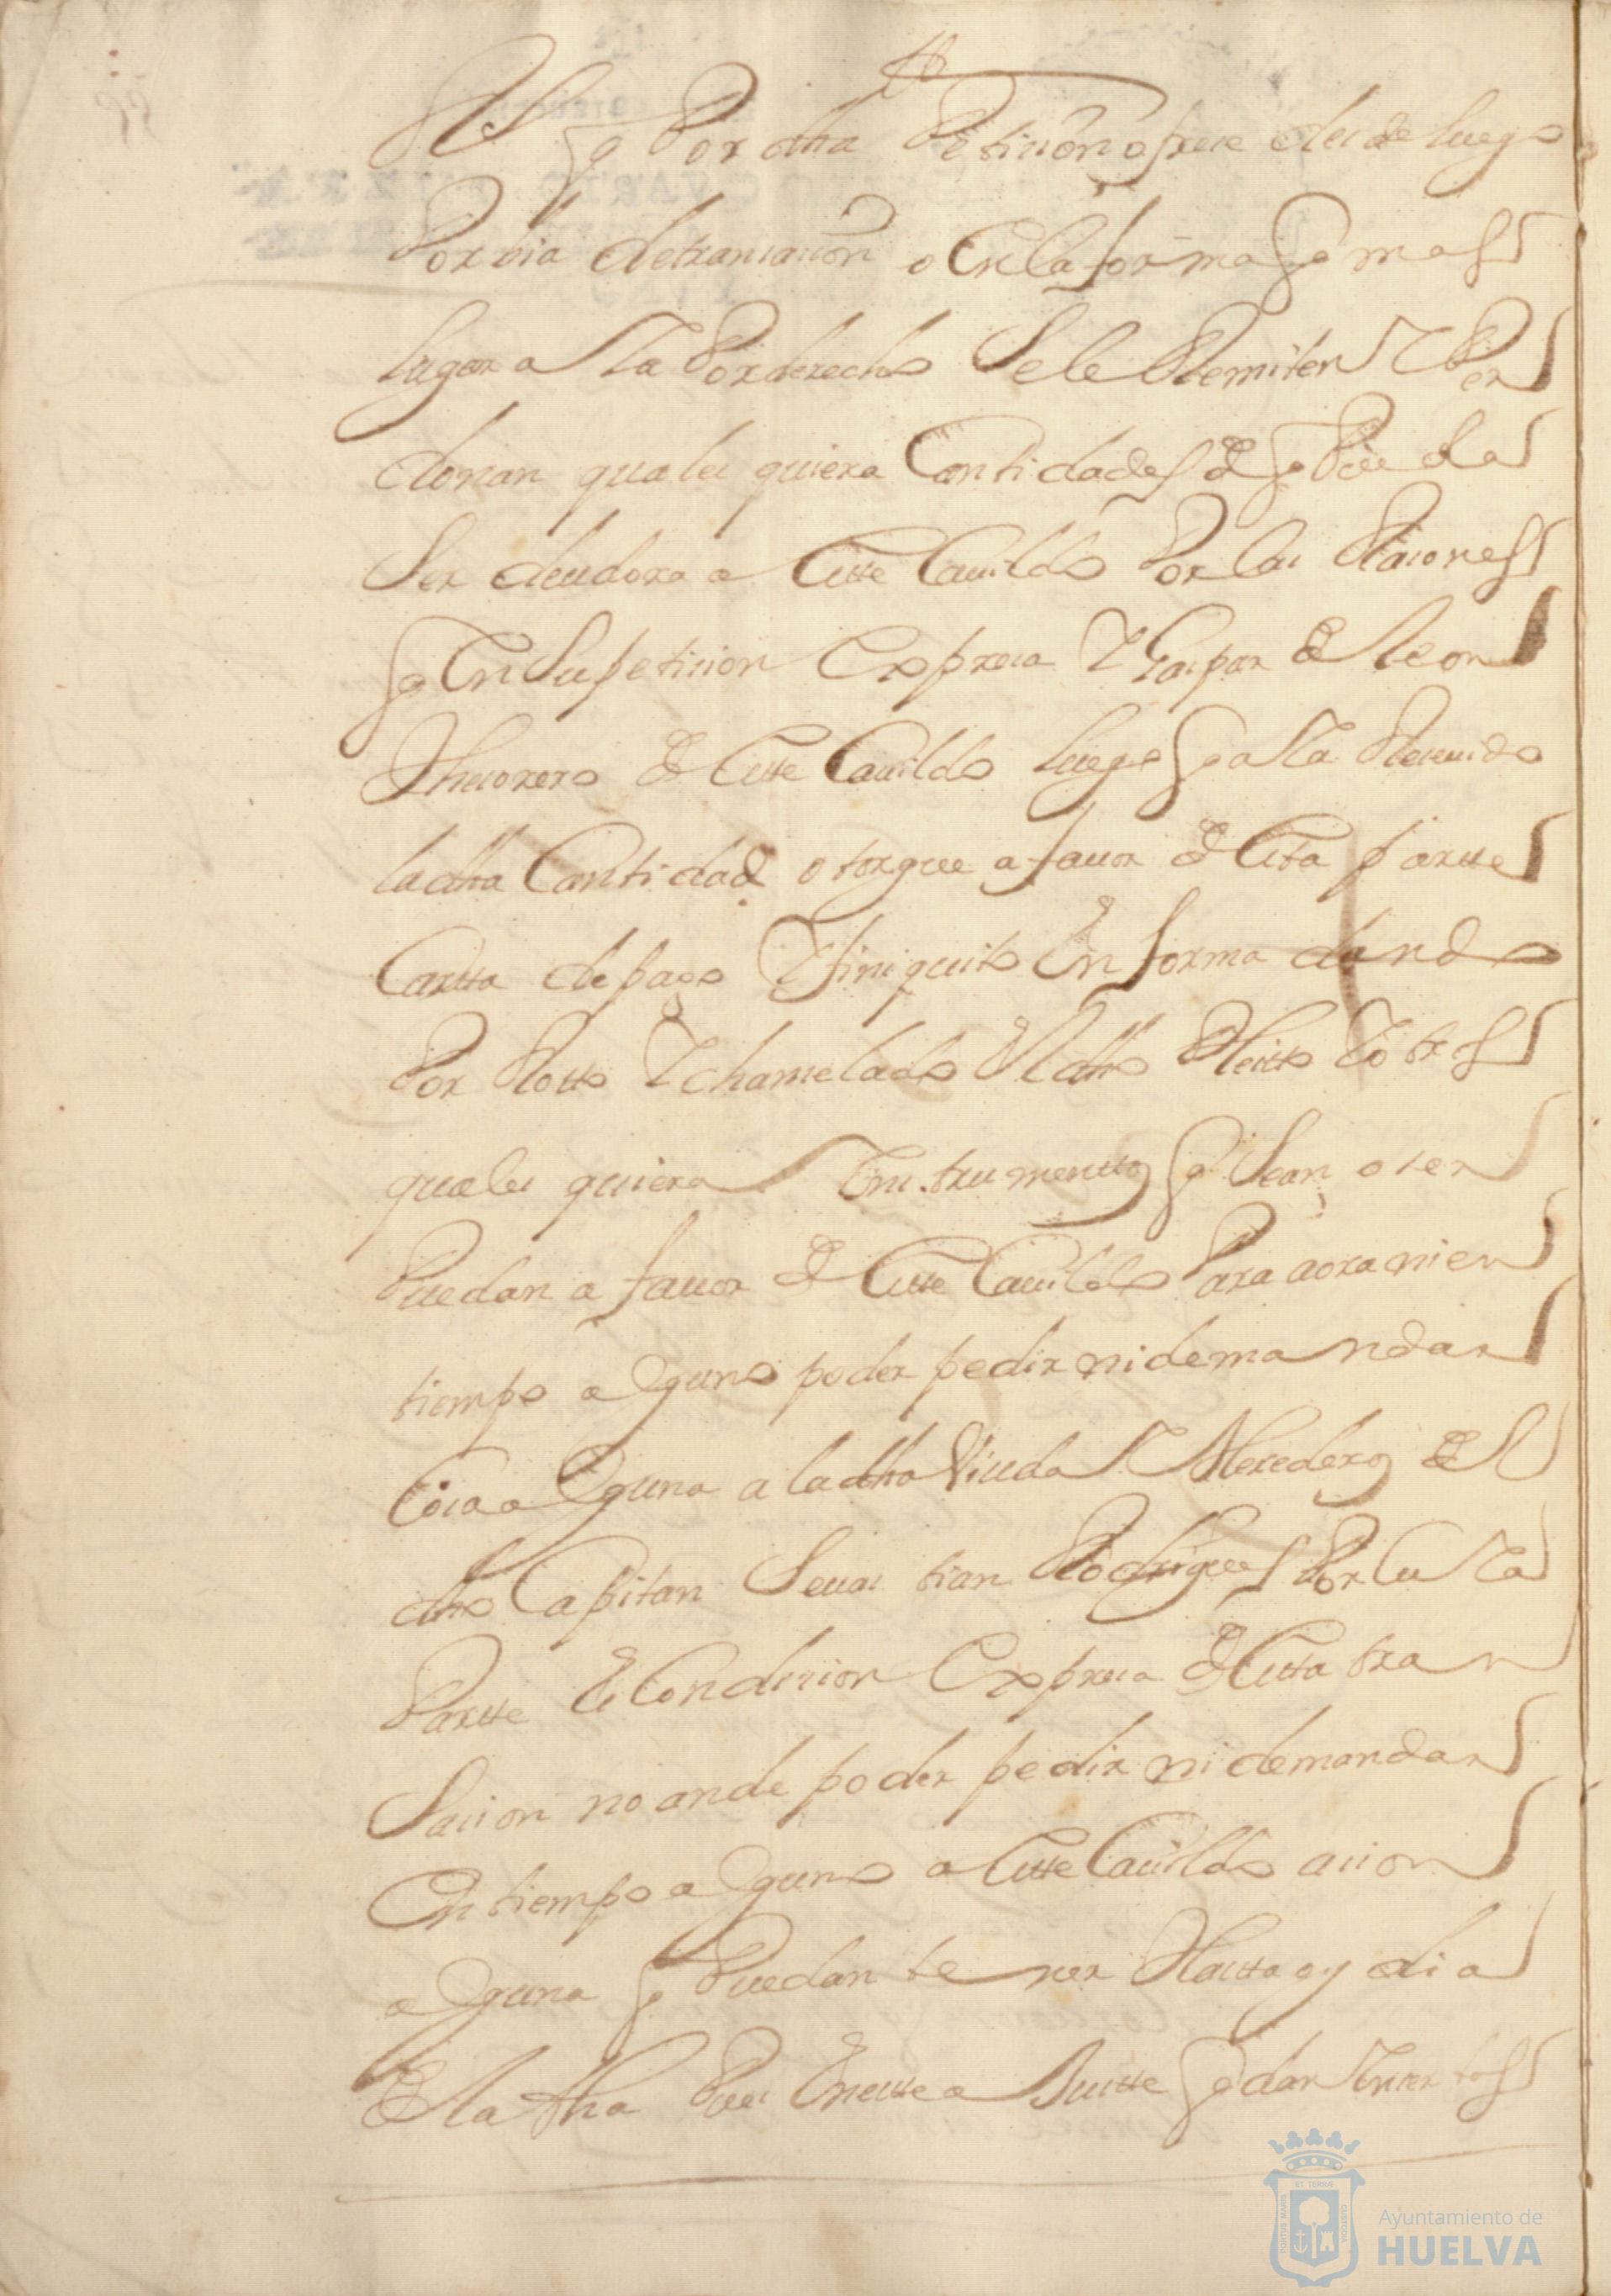 q por dha Peticion ofrece desde luego
Por bia de transacion o en la forma q mas
lugar alla Por derecho Se le Remiten I Per
donan quales quiera Cantidades de q Pueda
Ser deudora a Este Cauildo Por las Raiones
q En Su peticion Expresa I Gaspar de leon
thesorero de Este Cauildo luego q alla Reseuido
la dha Cantidad otorgue a fauor de Esta partte
Cartta de pago I finiquito En forma dando
Por Rotto I chanselado El dho Pleitto I ottros
quales quiera Instrumenttos q Sean o ser
Puedan a fauor de Este Cauildo Para aora ni en
tiempo alguno poder pedir ni demandar
Cosa alguna a la dha Viuda I Herederos del
dho Capitan Seuastian Rodrigues I Por la ottra
Partte Es Condision Expresa de Esta tran
Sacion no an de poder pedir ni demandar
En tiempo alguno a Este Cauildo acion
alguna q Puedan tener Hasta oy dia
de la fha Pues En esta a Buitte q dan Insertos
Ayuntamiento de
HUELVA